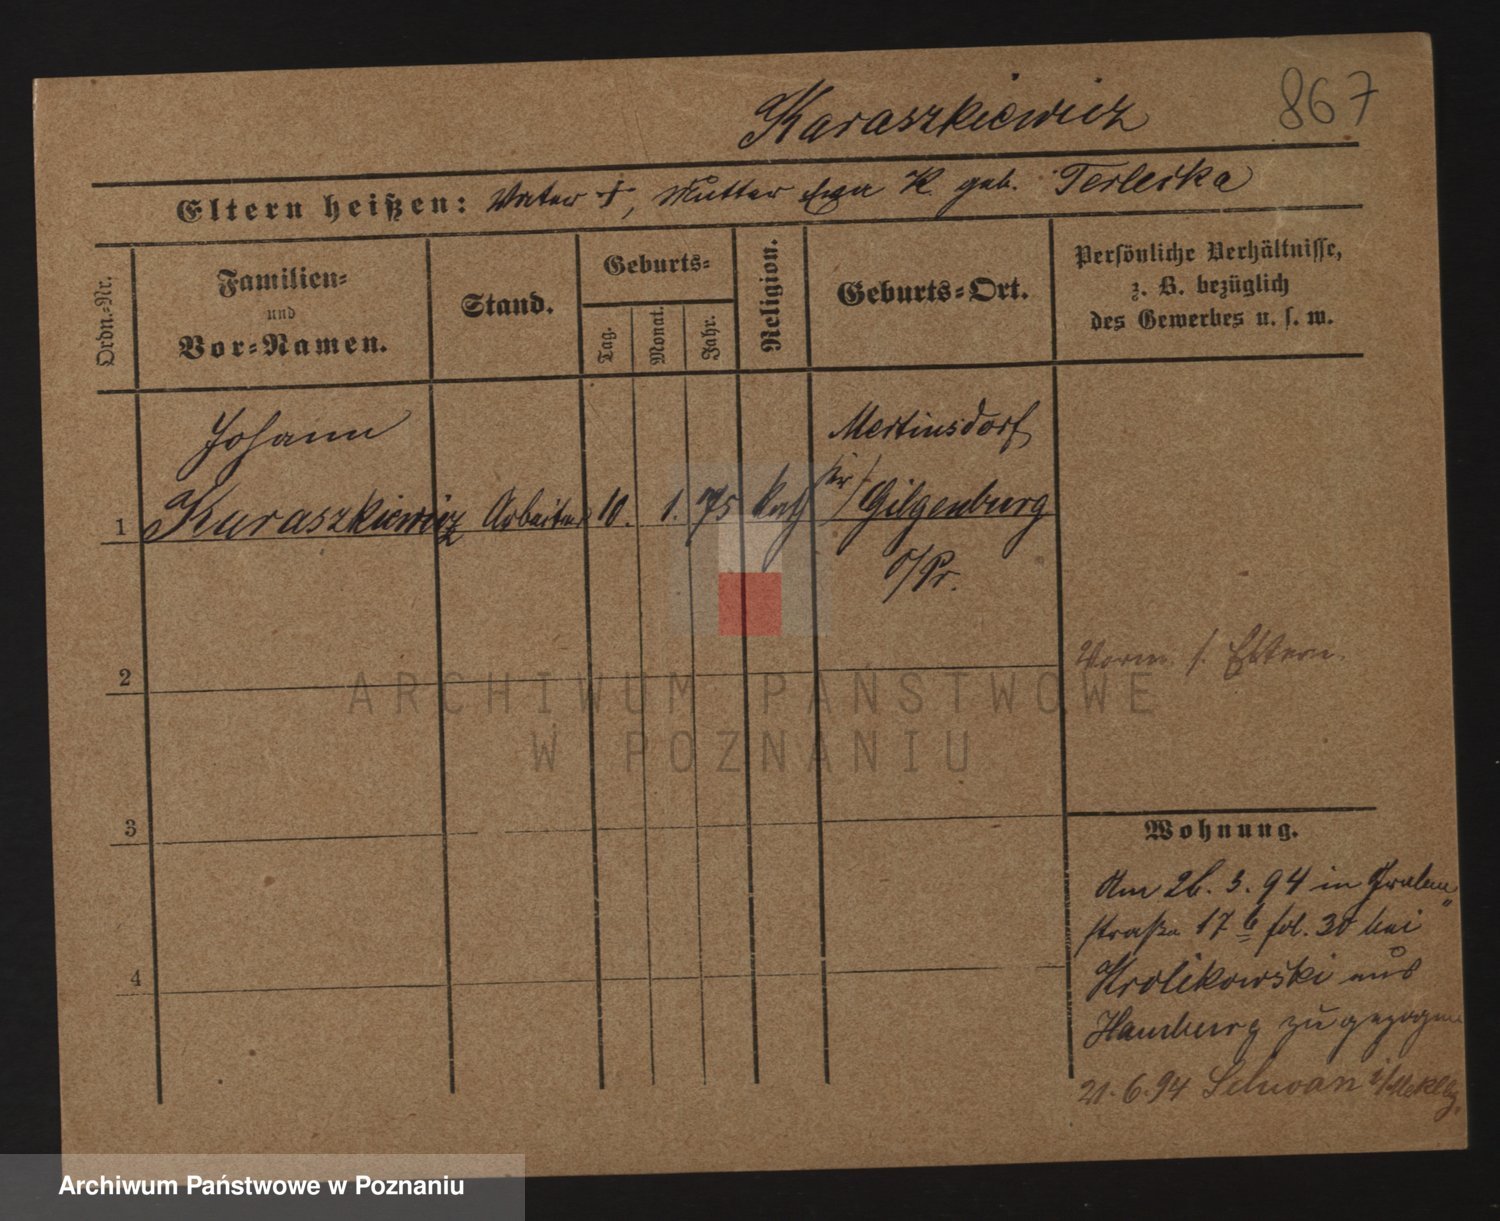 Karaszkiewicz
867
Eltern heißen: Vater †, Mutter Eva K. geb. Terlecka
Ordn.-Nr.
Familien-
und
Vor-Namen.
Stand.
Geburts-
Tag.
Monat.
Jahr.
Religion.
Geburts-Ort.
Persönliche Verhältnisse,
z. B. bezüglich
des Gewerbes u. s. w.
Johann
Mertinsdorf
1 Karaszkiewicz Arbeiter 10. 1. 75 kath Kr/Gilgenburg
O/Pr.
Vorm. s. Eltern.
2
3
Wohnung.
Am 26. 3. 94 in Graben
straße 17 b fol. 30 bei
4
Krolikowski aus
Hamburg zugezogen
21.6.94 Schwan i/Meklbg.
ARCHIWUM PAŃSTWOWE
W POZNANIU
Archiwum Państwowe w Poznaniu